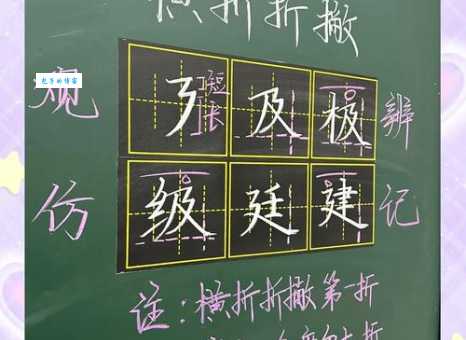 横折折撇
观
辨
仿
记
短
长
及 极
级 廷 建
注：横折折撇第一折